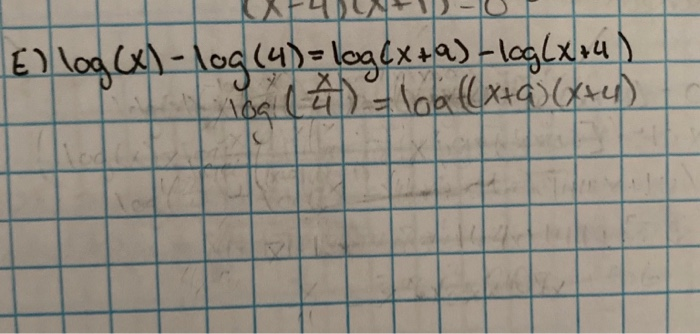 (x-4)(x+1)=0
E) log(x) - log(4) = log(x+9) - log(x+4)
log(x/4) = log((x+9)(x+4)